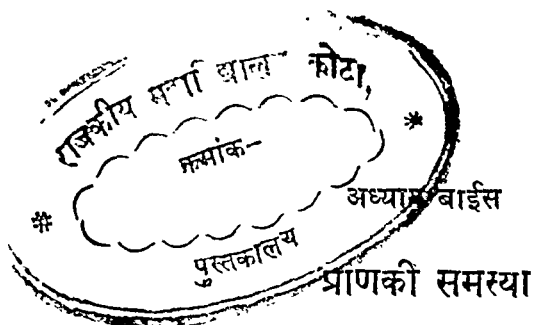 राजकीय कोटा,
क्रमांक-
पुस्तकालय
अध्याय बाईस
प्राणकी समस्या